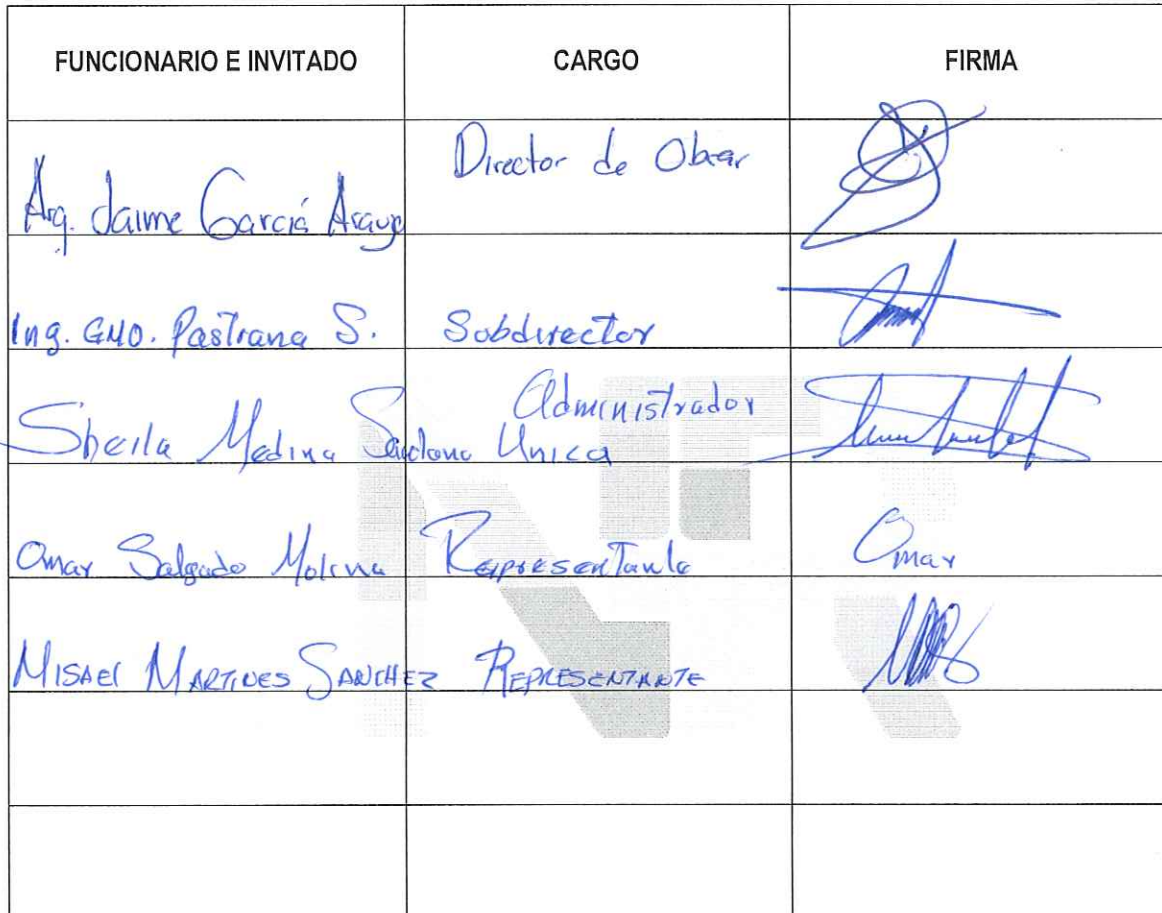 FUNCIONARIO E INVITADO CARGO FIRMA
Arq. Jaime García Araujo Director de Obras
Ing. GMO. Pastrana S. Subdirector
Sheila Medina Administrador
Unica
Omar Salgado Molina Representante Omar
MISAEl MARTINES SANCHEZ REPRESENTANTE